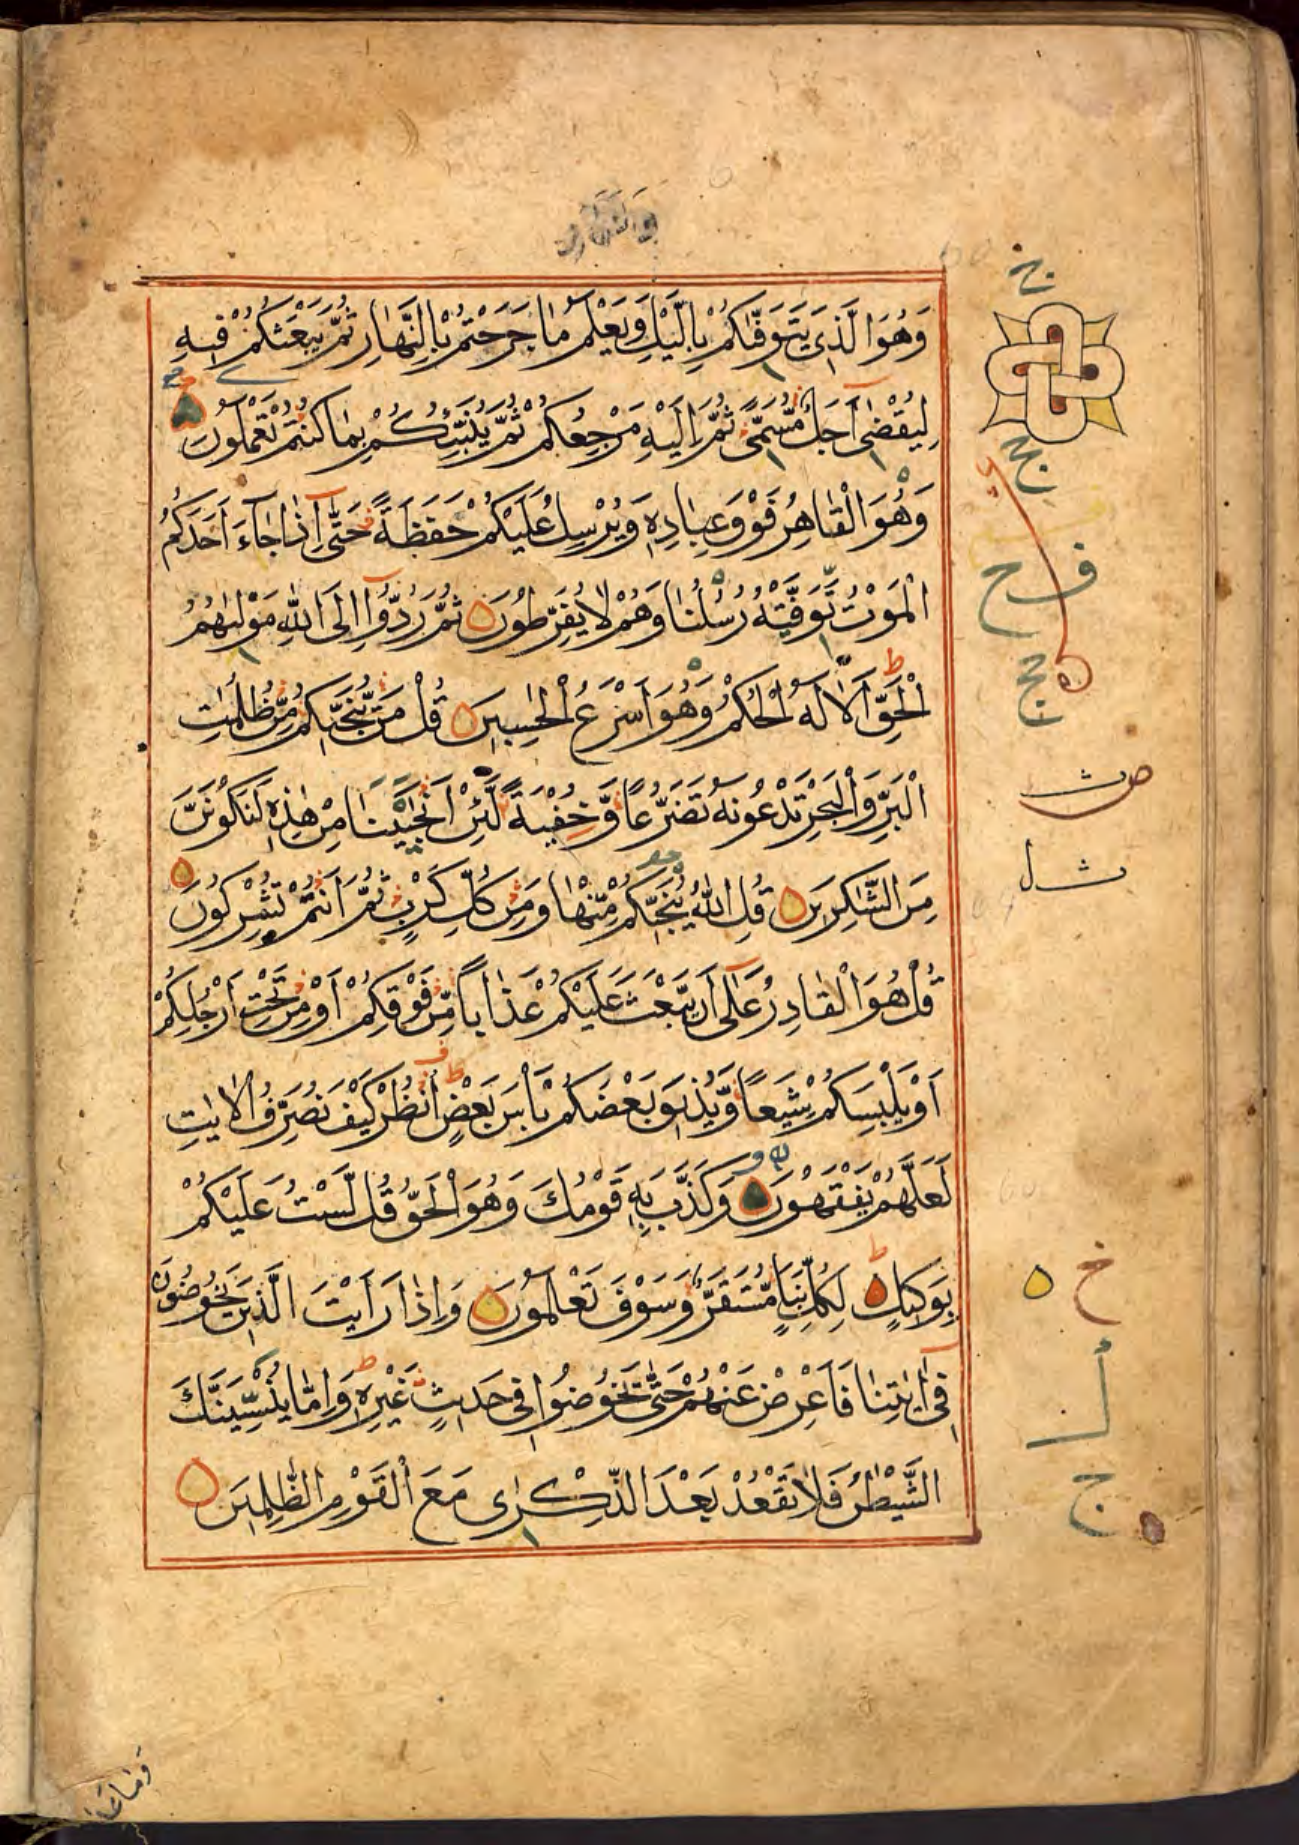 وَهُوَ الَّذِى يَتَوَفّٰىكُمْ بِالَّيْلِ وَيَعْلَمُ مَا جَرَحْتُمْ بِالنَّهَارِ ثُمَّ يَبْعَثُكُمْ فِيهِ
لِيُقْضٰى اَجَلٌ مُّسَمًّى ثُمَّ اِلَيْهِ مَرْجِعُكُمْ ثُمَّ يُنَبِّئُكُمْ بِمَا كُنْتُمْ تَعْمَلُونَ
وَهُوَ الْقَاهِرُ فَوْقَ عِبَادِهٖ وَيُرْسِلُ عَلَيْكُمْ حَفَظَةً حَتّٰى اِذَا جَاءَ اَحَدَكُمُ
الْمَوْتُ تَوَفَّتْهُ رُسُلُنَا وَهُمْ لَا يُفَرِّطُونَ ثُمَّ رُدُّوا اِلَى اللّٰهِ مَوْلٰىهُمُ
الْحَقِّ اَلَا لَهُ الْحُكْمُ وَهُوَ اَسْرَعُ الْحٰسِبِينَ قُلْ مَنْ يُّنَجِّيكُمْ مِّنْ ظُلُمٰتِ
الْبَرِّ وَالْبَحْرِ تَدْعُونَهٗ تَضَرُّعًا وَّخُفْيَةً لَّئِنْ اَنْجَيْتَنَا مِنْ هٰذِهٖ لَنَكُونَنَّ
مِنَ الشّٰكِرِينَ قُلِ اللّٰهُ يُنَجِّيكُمْ مِّنْهَا وَمِنْ كُلِّ كَرْبٍ ثُمَّ اَنْتُمْ تُشْرِكُونَ
قُلْ هُوَ الْقَادِرُ عَلٰى اَنْ يَّبْعَثَ عَلَيْكُمْ عَذَابًا مِّنْ فَوْقِكُمْ اَوْ مِنْ تَحْتِ اَرْجُلِكُمْ
اَوْ يَلْبِسَكُمْ شِيَعًا وَّيُذِيقَ بَعْضَكُمْ بَاْسَ بَعْضٍ اُنْظُرْ كَيْفَ نُصَرِّفُ الْاٰيٰتِ
لَعَلَّهُمْ يَفْقَهُونَ وَكَذَّبَ بِهٖ قَوْمُكَ وَهُوَ الْحَقُّ قُلْ لَّسْتُ عَلَيْكُمْ
بِوَكِيلٍ لِكُلِّ نَبَاٍ مُّسْتَقَرٌّ وَّسَوْفَ تَعْلَمُونَ وَاِذَا رَاَيْتَ الَّذِينَ يَخُوضُونَ
فِى اٰيٰتِنَا فَاَعْرِضْ عَنْهُمْ حَتّٰى يَخُوضُوا فِى حَدِيثٍ غَيْرِهٖ وَاِمَّا يُنْسِيَنَّكَ
الشَّيْطٰنُ فَلَا تَقْعُدْ بَعْدَ الذِّكْرٰى مَعَ الْقَوْمِ الظّٰلِمِينَ